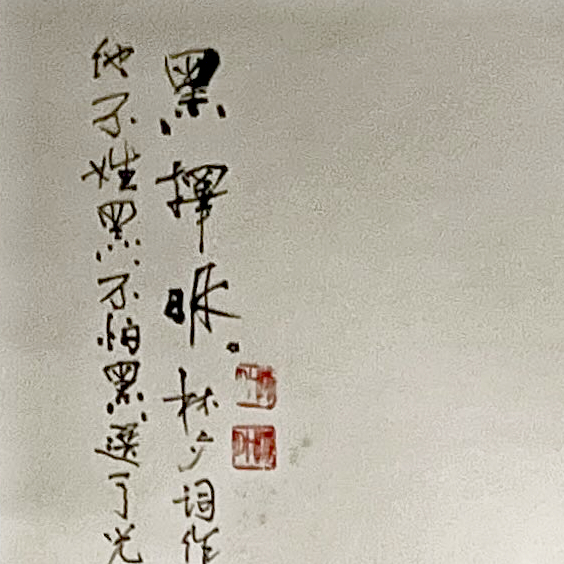 黑擇眠。林夕词作
他不姓黑不怕黑選了光